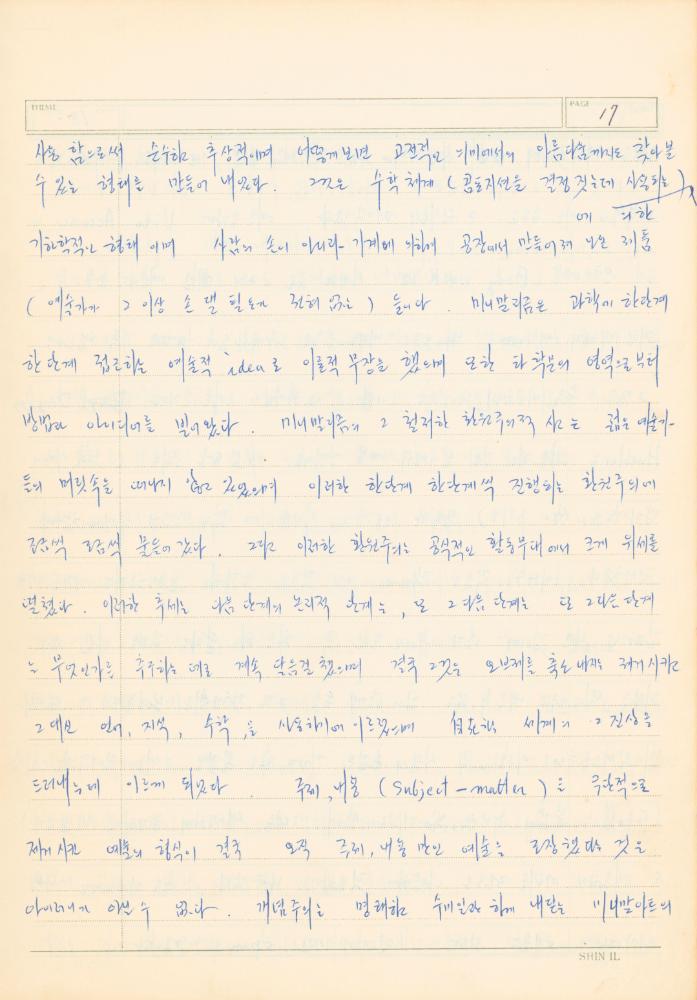 THEME
PAGE
17
사용 함으로써 순수하고 추상적이며 어떻게보면 고전적인 의미에서의 아름다움까지도 찾아볼
수 있는 형태를 만들어 내었다. 그것은 수학체계 (공통치선을 결정 짓는데 사용되는)
에 의한
기하학적인 형태 이며 사람의 손이 아니라 기계에 의하여 공장에서 만들어져 나온 제품
(예술가가 그 이상 손 댈 필요가 전혀 없는) 들이다. 미니말리즘은 과학에 한단계
한단계 접근하는 예술적 idea로 이론적 무장을 했으며 또한 타 학문의 영역으로부터
방법과 아이디어를 빌어왔다. 미니말리즘의 그 철저한 환원주의적 사고는 젊은 예술가
들의 머릿속을 떠나지 않고 있었으며 이러한 한단계 한단계씩 진행하는 환원주의에
조금씩 조금씩 물들어 갔다. 그리고 이러한 환원주의는 공식적인 활동무대에서 크게 위세를
떨쳤다. 이러한 추세는 다음 단계의 논리적 단계는, 또 그다음 단계는 또 그다음 단계
는 무엇인가를 추구하는 데로 계속 달음질 쳤으며 결국 그것은 오브제를 축소 내지는 제거시키고
그대신 언어, 지식, 수학,을 사용하기에 이르렀으며 自然的 세계의 그 진상을
드러내는데 이르게 되었다. 주제, 내용 (Subject-matter)을 극단적으로
제거시킨 예술의 형식이 결국 오직 주제, 내용 만인 예술을 조장했다는 것은
아이러니가 아닐 수 없다. 개념주의는 명쾌하고 수미일관 하게 내닫는 미니말아트의
SHIN IL